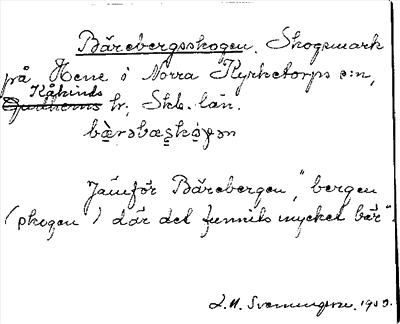 Bärebergsskogen. Skogsmark
på Hene i Norra Kyrketorps s:n,
Kåkinds
Gudhems hr, Skb. län.
bæ̀rəbæs̠kó̠gən
Jämför Bärebergen, "bergen
(skogen) där det funnits mycket bär".
L. M. Svenungsson. 1933.